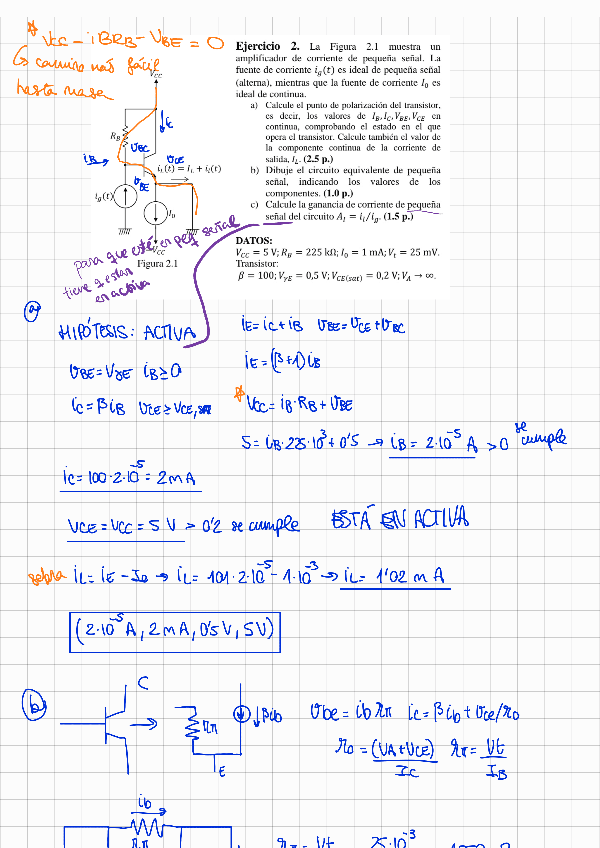 * Vcc - iBRB - VBE = 0
↳ camino más fácil
hasta masa
Ejercicio 2. La Figura 2.1 muestra un
amplificador de corriente de pequeña señal. La
fuente de corriente ig(t) es ideal de pequeña señal
(alterna), mientras que la fuente de corriente I0 es
ideal de continua.
a) Calcule el punto de polarización del transistor,
es decir, los valores de IB, IC, VBE, VCE en
continua, comprobando el estado en el que
opera el transistor. Calcule también el valor de
la componente continua de la corriente de
salida, IL. (2.5 p.)
b) Dibuje el circuito equivalente de pequeña
señal, indicando los valores de los
componentes. (1.0 p.)
c) Calcule la ganancia de corriente de pequeña
señal del circuito AI = il/ig. (1.5 p.)
DATOS:
VCC = 5 V; RB = 225 kΩ; I0 = 1 mA; Vt = 25 mV.
Transistor:
β = 100; VγE = 0,5 V; VCE(sat) = 0,2 V; VA → ∞.
VCC
ic
RB
VBC
iB
VCE
iL(t) = IL + il(t)
VBE
ig(t)
I0
-VCC
Figura 2.1
para que esté en peq señal
tiene q estar
en activa
a)
HIPÓTESIS: ACTIVA
VBE = VγE iB ≥ 0
ic = βiB VCE ≥ VCE,SAT
iE = ic + iB VBE = VCE + VBC
iE = (β+1) iB
* Vcc = iB·RB + VBE
5 = iB·225·10³ + 0'5 → iB = 2·10⁻⁵ A > 0 se cumple
ic = 100·2·10⁻⁵ = 2mA
VCE = VCC = 5 V > 0'2 se cumple ESTÁ EN ACTIVA
sobra iL = iE - I0 → iL = 101·2·10⁻⁵ - 1·10⁻³ → iL = 1'02 mA
(2·10⁻⁵ A, 2mA, 0'5V, 5V)
b)
C
rπ
↓βib
E
Vbe = ib rπ ic = βib + Vce/r0
r0 = (VA+VCE)/IC rπ = Vt/IB
ib